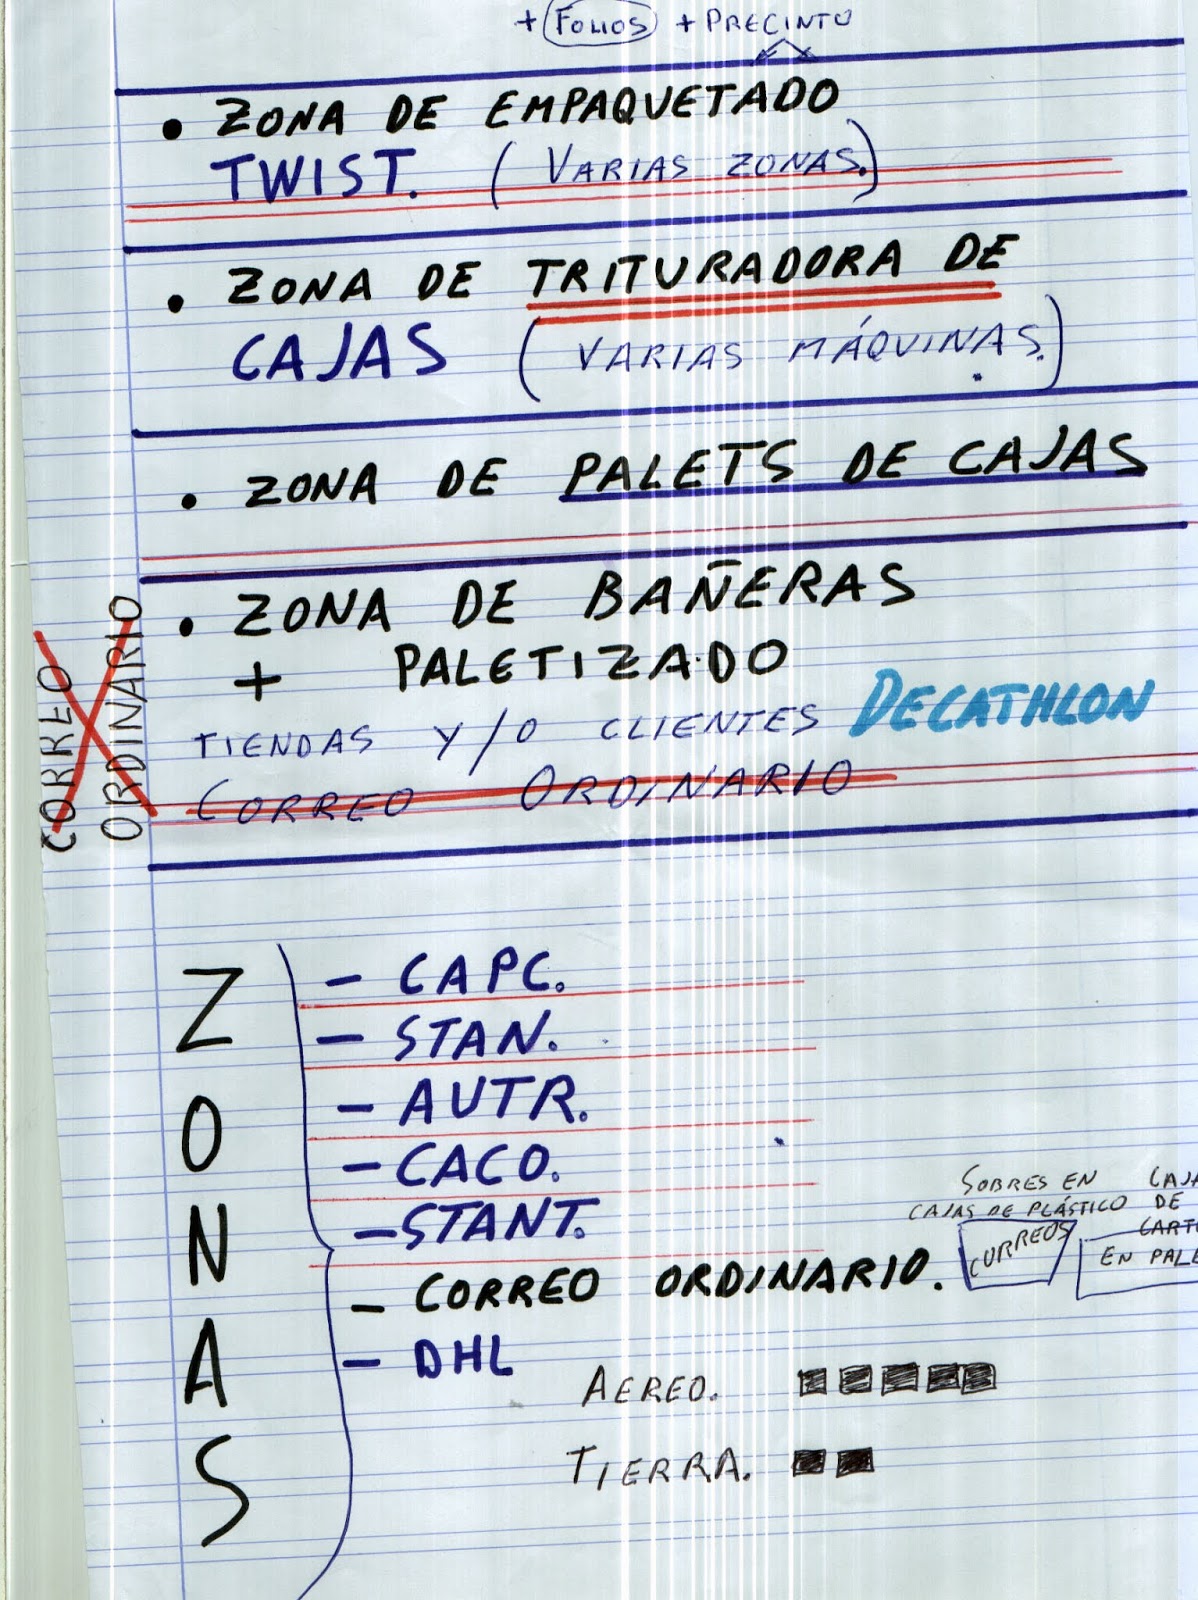 + FOLIOS + PRECINTO
• ZONA DE EMPAQUETADO
TWIST. (VARIAS ZONAS.)
• ZONA DE TRITURADORA DE
CAJAS (VARIAS MÁQUINAS.)
• ZONA DE PALETS DE CAJAS
• ZONA DE BAÑERAS
+ PALETIZADO
TIENDAS Y/O CLIENTES DECATHLON
CORREO ORDINARIO
CORREO
ORDINARIO
ZONAS
- CAPC.
- STAN.
- AUTR.
- CACO.
- STANT.
- CORREO ORDINARIO.
- DHL
SOBRES EN
CAJAS DE PLÁSTICO
CORREOS
DE
EN
AEREO.
TIERRA.